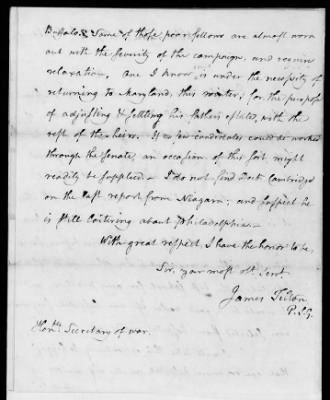 Buffalo. Some of those poor fellows are almost worn
out with the severity of the campaign, and require
relaxation. One I know, is under the necessity of
returning to Maryland, this winter, for the purpose
of adjusting & settling his fathers estates, with the
rest of the heirs. If a few candidates could be worked
through the Senate, an occasion of this sort might
readily be supplied. I do not find Doct.
on the last report from Niagara; and suspect he
is still loitering about Philadelphia.
With great respect I have the honor to be,
Sir, your most obt. Servt.
James Tilton
P.S.G.
Honble. Secretary of war.